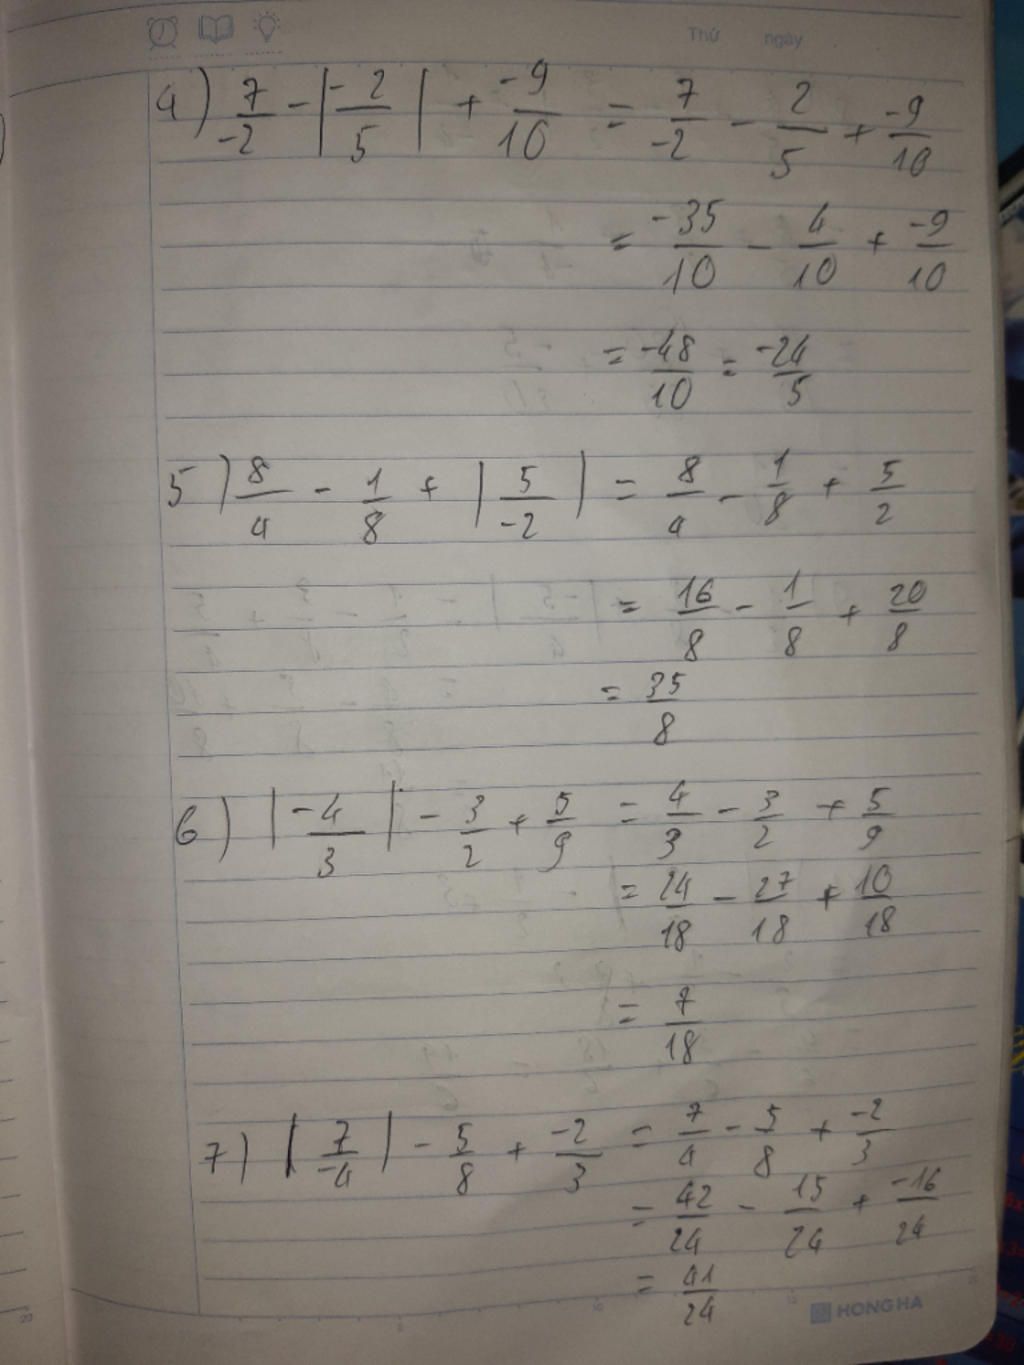 Thứ ngày
4) 7/-2 - |-2/5| + -9/10 = 7/-2 - 2/5 + -9/10
= -35/10 - 4/10 + -9/10
= -48/10 = -24/5
5) 8/4 - 1/8 + |5/-2| = 8/4 - 1/8 + 5/2
= 16/8 - 1/8 + 20/8
= 35/8
6) |-4/3| - 3/2 + 5/9 = 4/3 - 3/2 + 5/9
= 24/18 - 27/18 + 10/18
= 7/18
7) |7/-4| - 5/8 + -2/3 = 7/4 - 5/8 + -2/3
= 42/24 - 15/24 + -16/24
= 41/24
HONG HA